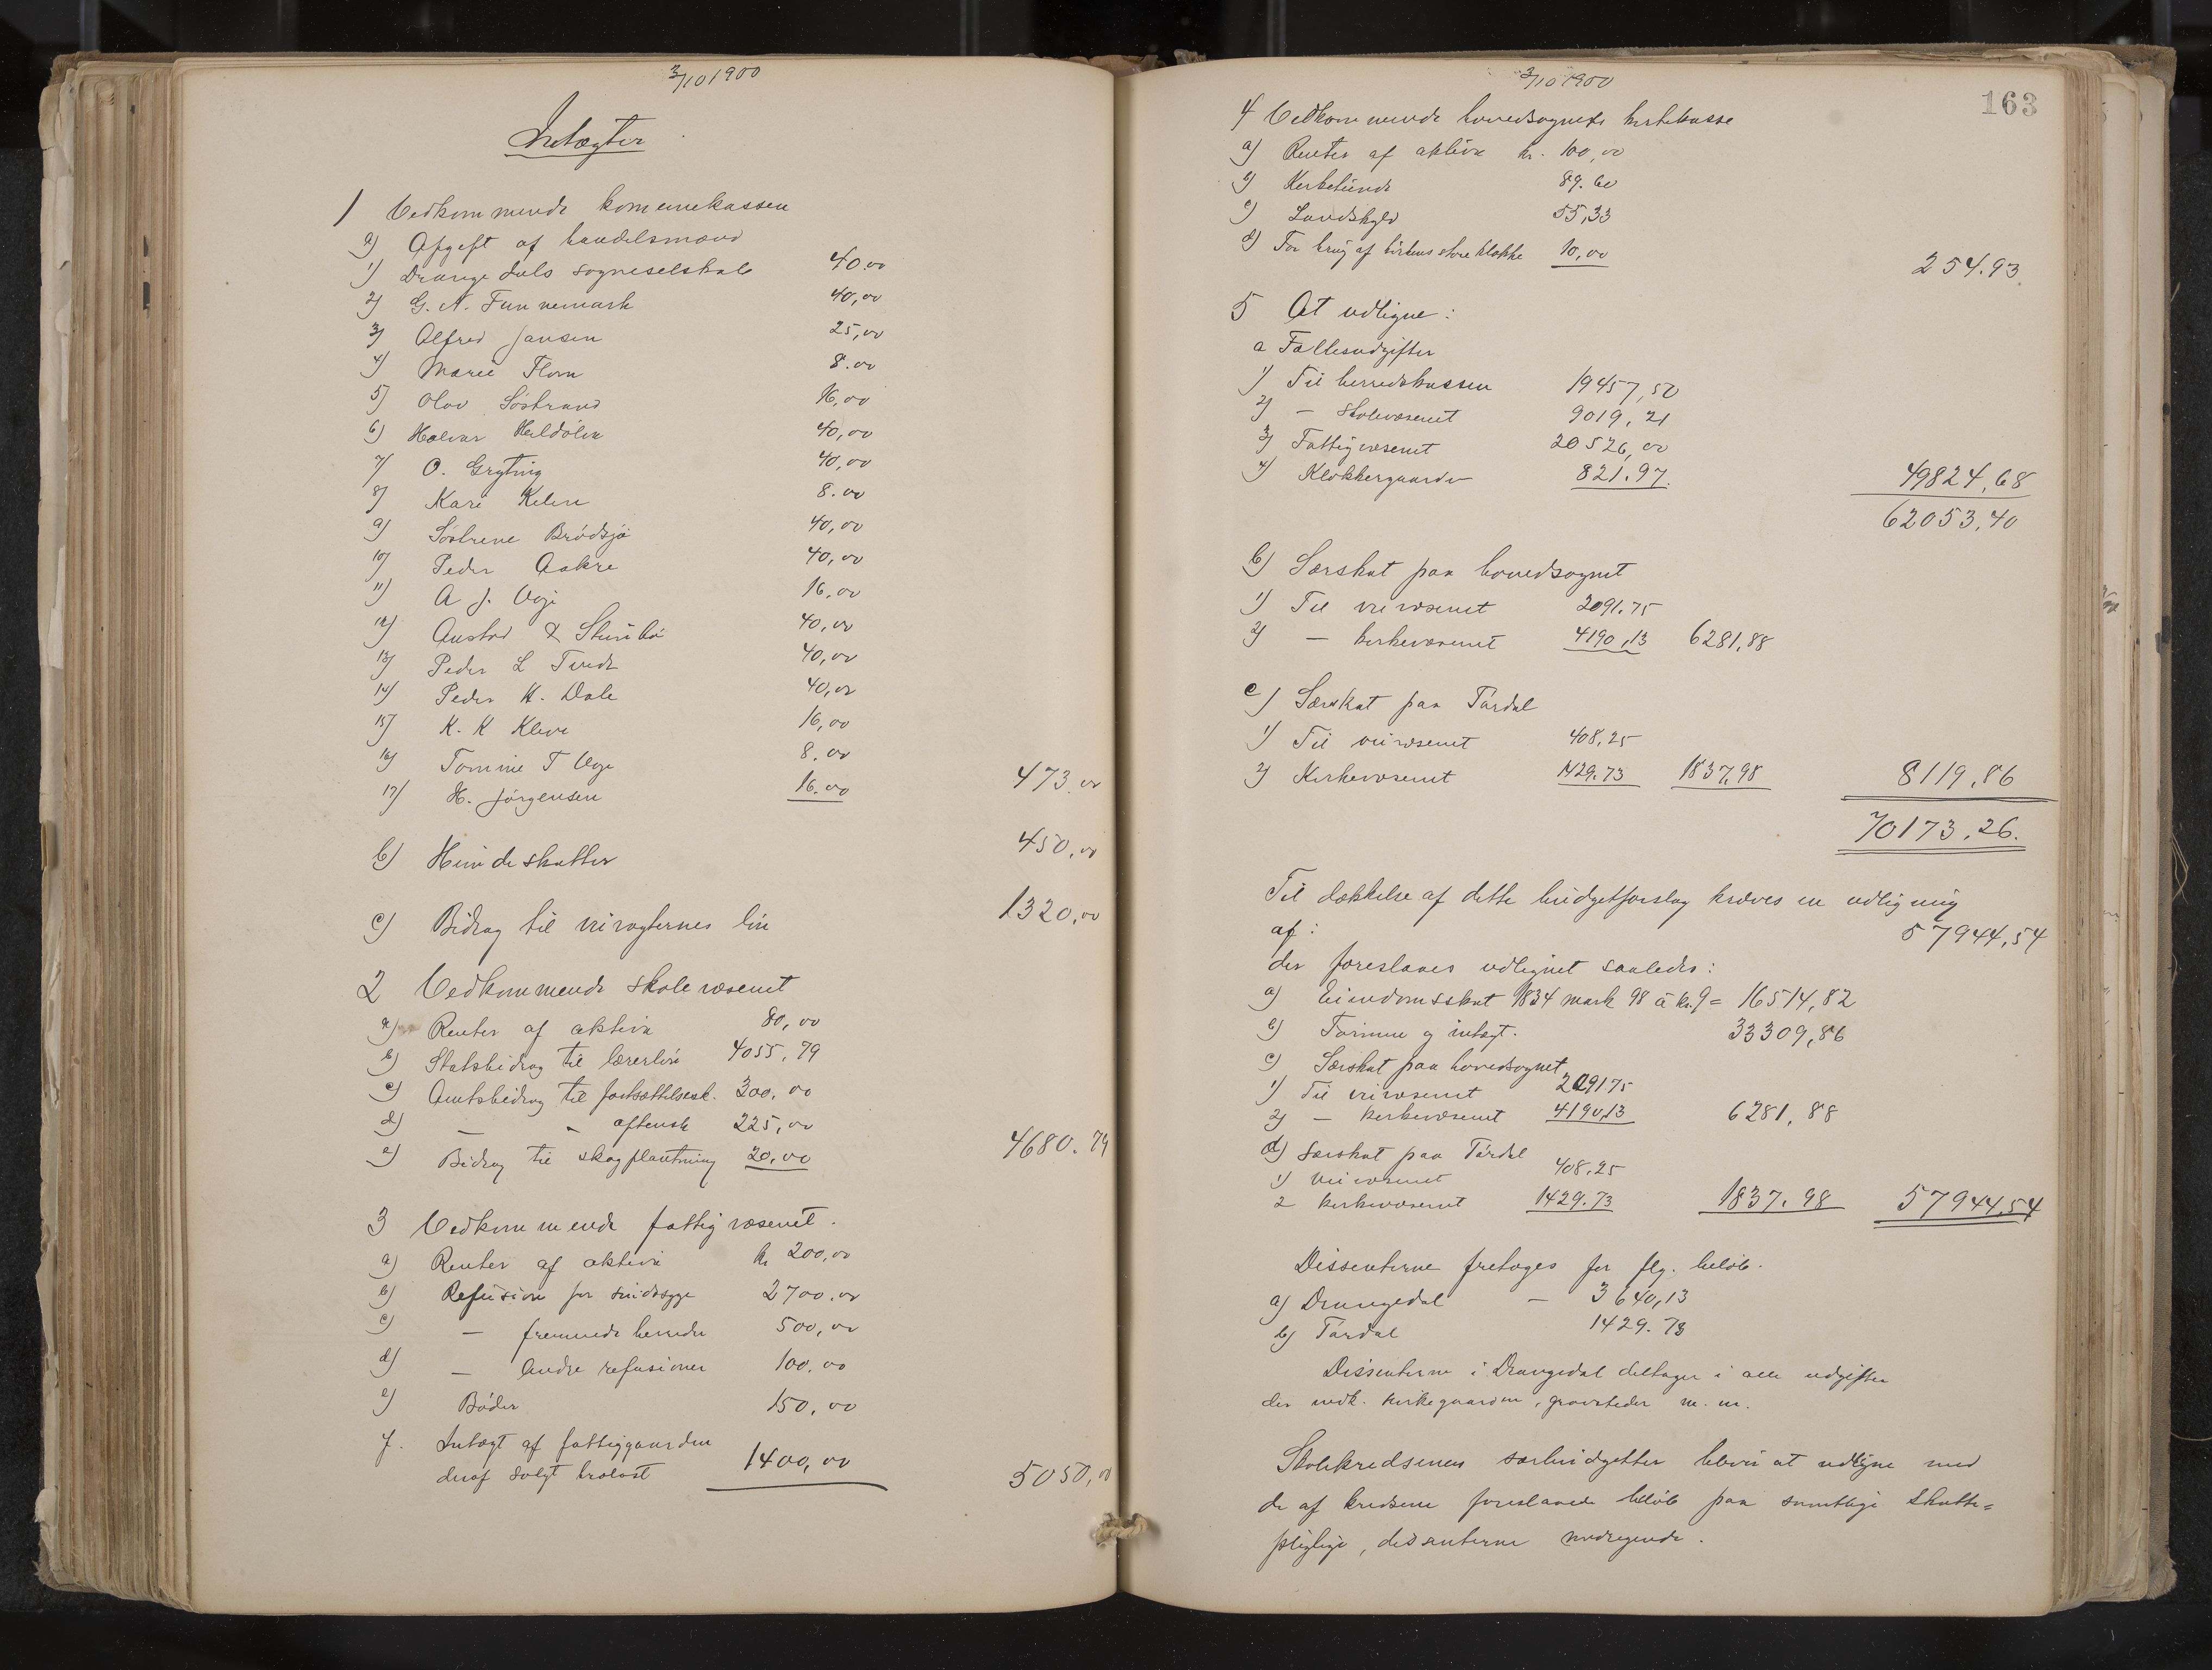 3/10 1900
Indtægter
1 Vedkommende kommunekassen
a) Afgift af handelsmænd
1) Drangedals sogneselskab 40.00
2) G. N. Funnemark 40,00
3) Alfred Jansen 25,00
4) Marie Flom 8.00
5) Olav Søstrand 16,00
6) Halvar 40,00
7) O. Gryting 40,00
8) Kari 8.00
9) Søstrene Brødsjø 40,00
10) Peder Aakre 40,00
11) A J. Voje 16,00
12) Austad & 40,00
13) Peder L 40,00
14) Peder K. Dale 40,00
15) K. K Kleva 16,00
16) Tomine T Voje 8.00
17) H. Jørgensen 16.00 473.00
b) Hundeskatter 450,00
c) Bidrag til veivogternes løn 1320,00
2 Vedkommende skolevæsenet
a) Renter af aktiva 80,00
b) Statsbidrag til lærerløn 4055,79
c) Amtsbidrag til fortsættelsessk. 300,00
d) — " aftensk 225,00
e) Bidrag til skogplantning 20,00 4680.79
3 Vedkommende fattigvæsenet.
a) Renter af aktiva kr 200,00
b) Refusion for sindssyge 2700.00
c) — fremmede herreder 500,00
d) — Andre refusioner 100.00
e) Bøder 150,00
f. Indtægt af fattiggaarden
deraf solgt 1400,00 5050,00
3/10 1900
163
4 Vedkommende hovedsognets kirkekasse
a) Renter af aktiva kr. 100,00
b) Kirketiende 89.60
c) Landskyld 55,33
d) For brug af kirkens store klokke 10,00 254.93
5 At udligne:
a Fællesudgifter
1) Til herredskassen 19457,50
2) — Skolevæsenet 9019,21
3) Fattigvæsenet 20526,00
4) Klokkergaarden 821.97. 49824,68
62053,40
b) Særskat paa hovedsognet
1) Til veivæsenet 2091.75
2) — kirkevæsenet 4190,13 6281,88
c) Særskat paa Tørdal
1) Til veivæsenet 408,25
2) Kirkevæsenet 1429.73 1837,98 8119,86
70173,26.
Til dækkelse af dette budgetforslag kræves en udligning
af: 57944,54
der foreslaaes udlignet saaledes:
a) Eiendomsskat 1834 mark 98 à kr. 9 = 16514,82
b) Formue og indtægt. 33309,86
c) Særskat paa hovedsognet
1) Til veivæsenet 2091 75
2) — kirkevæsenet 4190,13 6281,88
d) Særskat paa Tørdal
1) Veivæsenet 408.25
2 kirkevæsenet 1429.73 1837.98 57944,54
Dissenterne fretages for flg. beløb.
a) Drangedal — 3640,13
b) Tørdal 1429.73
Dissenterne i Drangedal deltager i alle udgifter
der vedk. kirkegaardene, gravsteder m. m.
Skolekredsenes særbudgetter blever at udligne med
de af kredsene foreslaaede beløb paa samtlige skatte=
pligtige, dissenterne medregnede.